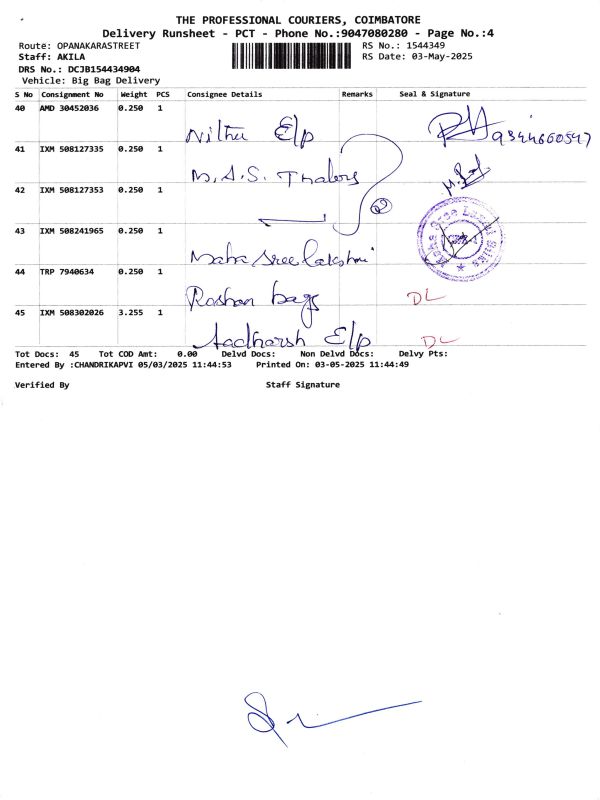 THE PROFESSIONAL COURIERS, COIMBATORE
Delivery Runsheet - PCT - Phone No.:9047080280 - Page No.:4
Route: OPANAKARASTREET RS No.: 1544349
Staff: AKILA RS Date: 03-May-2025
DRS No.: DCJB154434904
Vehicle: Big Bag Delivery
S No Consignment No Weight PCS Consignee Details Remarks Seal & Signature
40 AMD 30452036 0.250 1
Nithu E/p 9344660547
41 IXM 508127335 0.250 1
M.A.S. Thalers
42 IXM 508127353 0.250 1
2
43 IXM 508241965 0.250 1
Maha Sree lakshmi
44 TRP 7940634 0.250 1
Roshan bags DL
45 IXM 508302026 3.255 1
Aadharsh E/p DL
Tot Docs: 45 Tot COD Amt: 0.00 Delvd Docs: Non Delvd Docs: Delvy Pts:
Entered By :CHANDRIKAPVI 05/03/2025 11:44:53 Printed On: 03-05-2025 11:44:49
Verified By Staff Signature